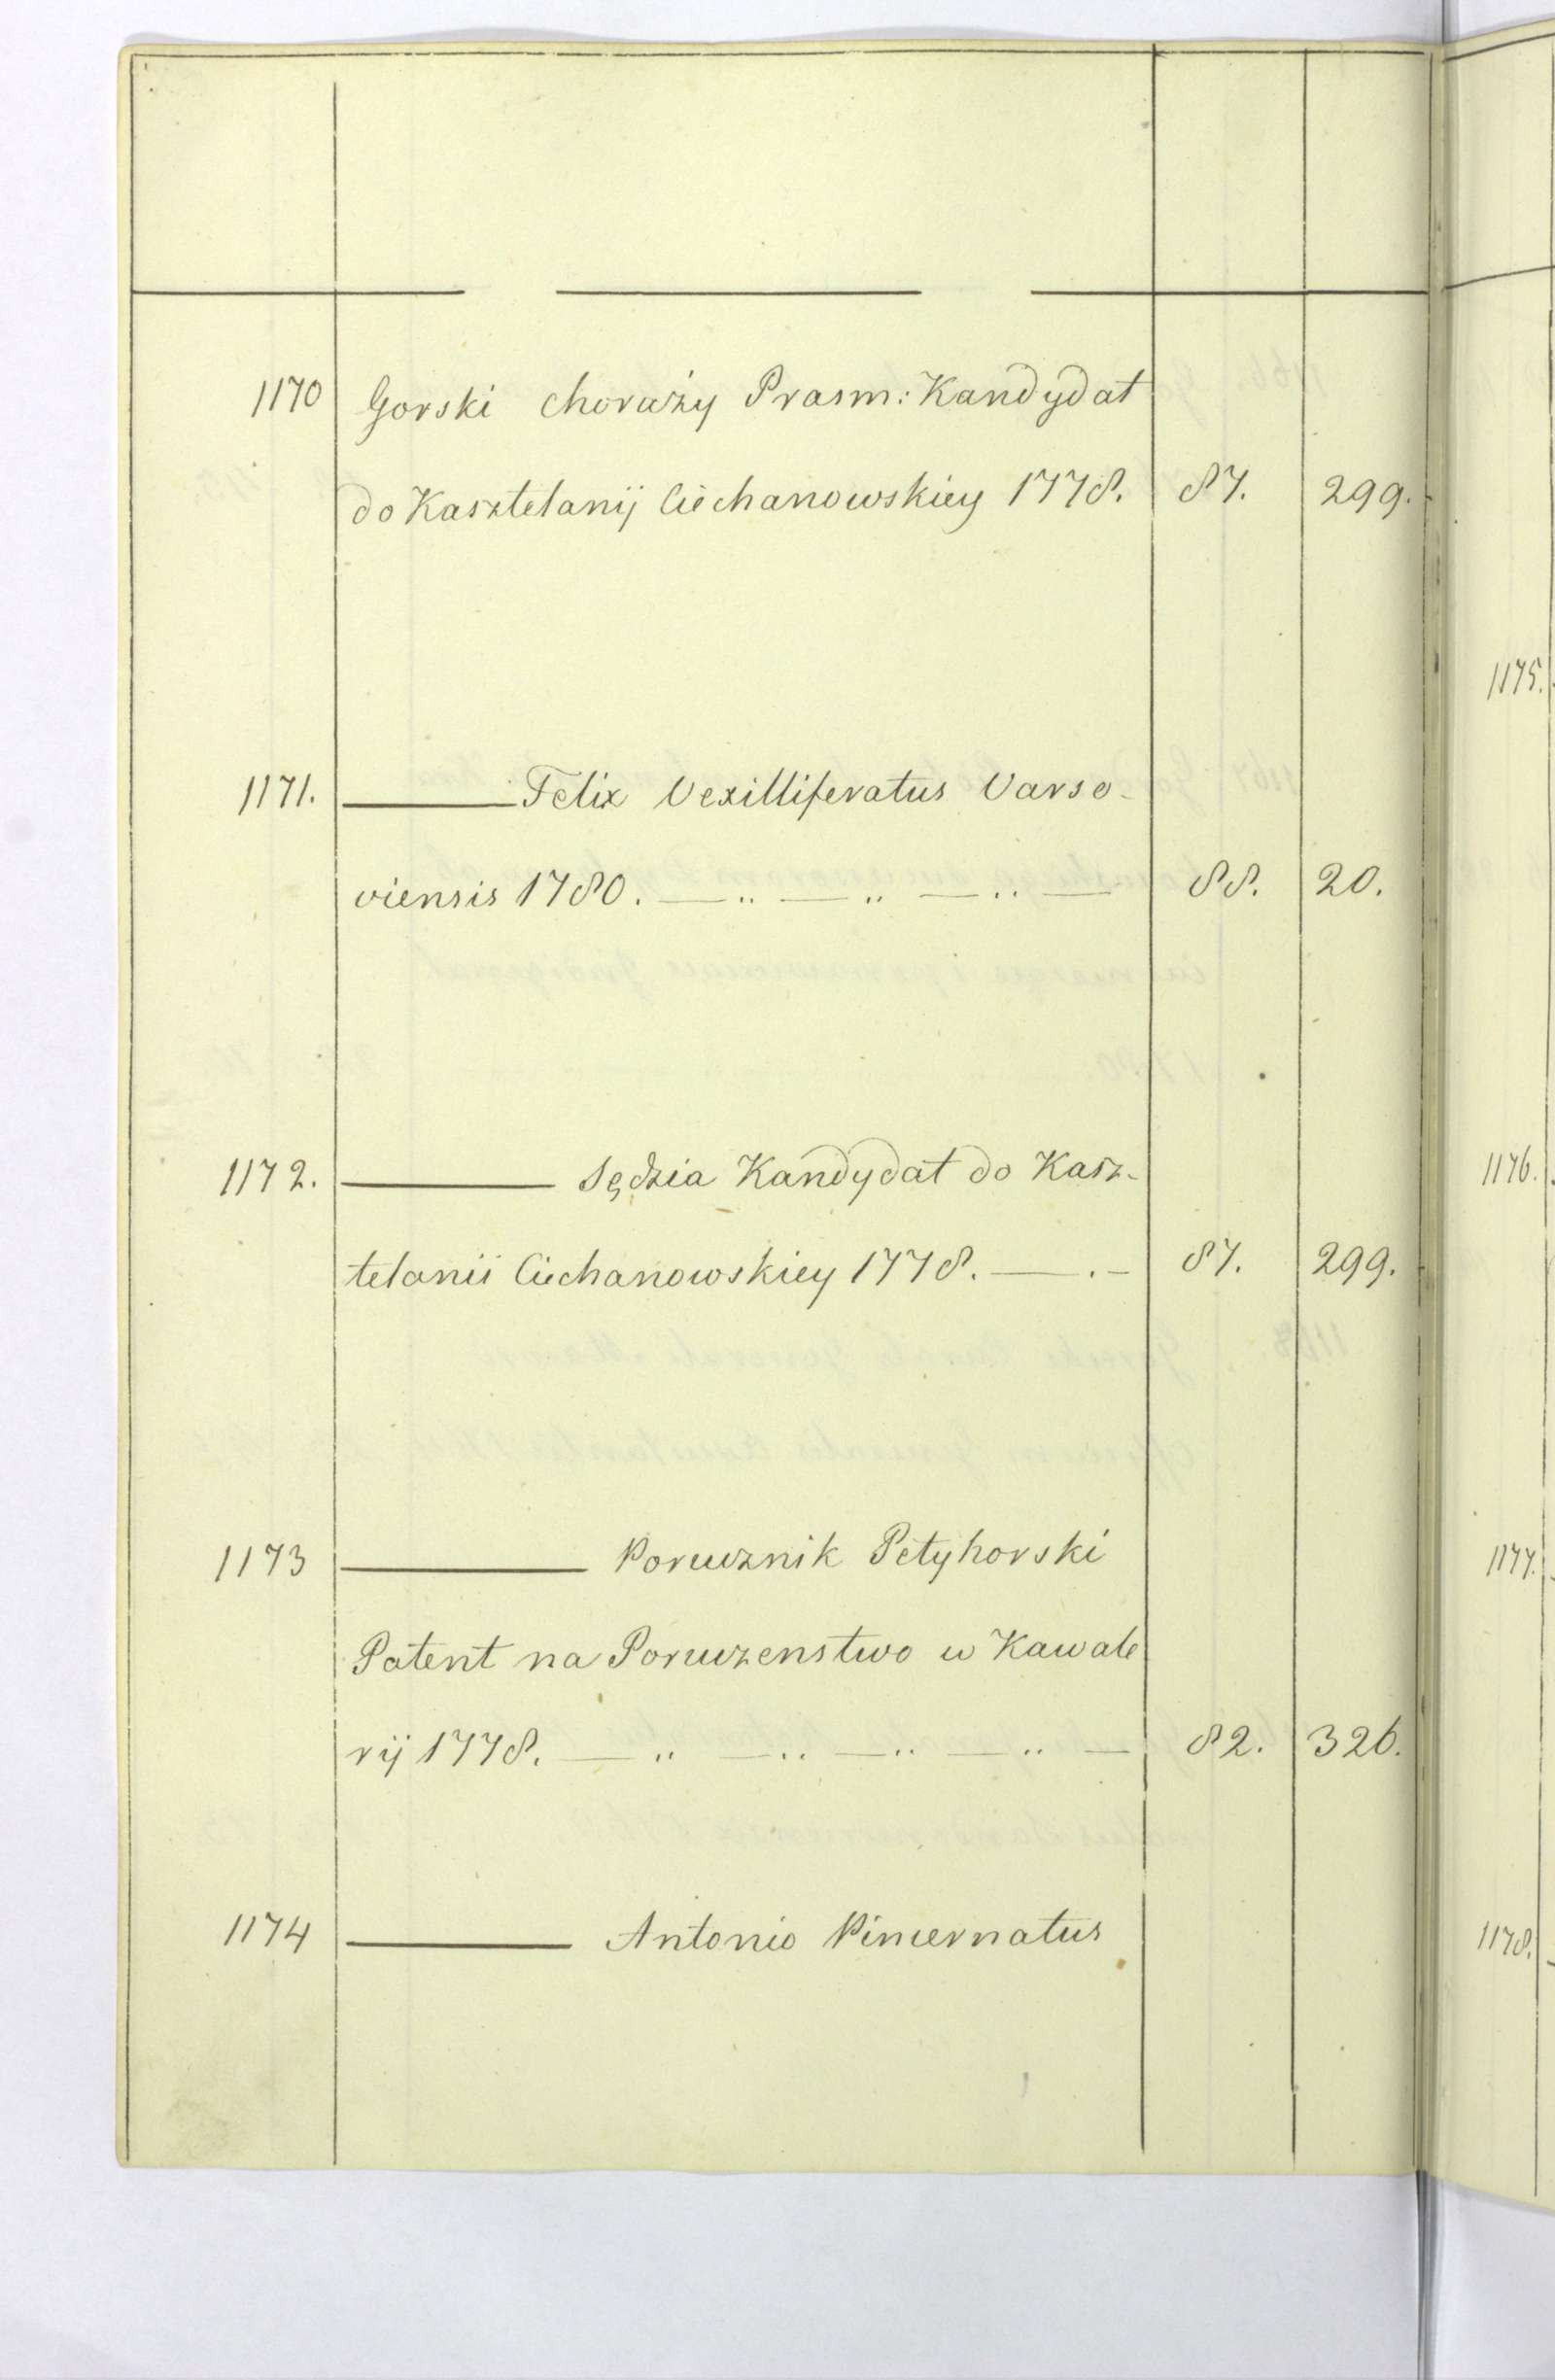 1170 Gorski Chorąży Prasm: Kandydat
do Kasztelanij Ciechanowskiey 1778. 87. 299.
1171. ——— Felix Vexilliferatus Varso-
viensis 1780. — „ — „ — „ — 88. 20.
1172. ——— Sędzia Kandydat do Kasz-
telanii Ciechanowskiey 1778. — . — 87. 299.
1173 ——— Porucznik Petyhorski
Patent na Poruczenstwo w Kawale
rij 1778. — „ — „ — „ — „ — 82. 326.
1174 ——— Antonio Pincernatus
1175.
1176.
1177.
1178.